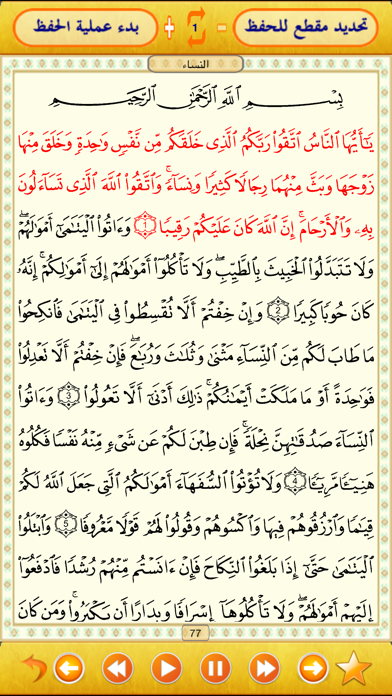 تحديد مقطع للحفظ - 1 + بدء عملية الحفظ
النساء
بِسْمِ ٱللَّهِ ٱلرَّحْمَٰنِ ٱلرَّحِيمِ
يَٰٓأَيُّهَا ٱلنَّاسُ ٱتَّقُوا۟ رَبَّكُمُ ٱلَّذِى خَلَقَكُم مِّن نَّفْسٍ وَٰحِدَةٍ وَخَلَقَ مِنْهَا
زَوْجَهَا وَبَثَّ مِنْهُمَا رِجَالًا كَثِيرًا وَنِسَآءً ۚ وَٱتَّقُوا۟ ٱللَّهَ ٱلَّذِى تَسَآءَلُونَ
بِهِۦ وَٱلْأَرْحَامَ ۚ إِنَّ ٱللَّهَ كَانَ عَلَيْكُمْ رَقِيبًا ۝١ وَءَاتُوا۟ ٱلْيَتَٰمَىٰٓ أَمْوَٰلَهُمْ ۖ
وَلَا تَتَبَدَّلُوا۟ ٱلْخَبِيثَ بِٱلطَّيِّبِ ۖ وَلَا تَأْكُلُوٓا۟ أَمْوَٰلَهُمْ إِلَىٰٓ أَمْوَٰلِكُمْ ۚ إِنَّهُۥ
كَانَ حُوبًا كَبِيرًا ۝٢ وَإِنْ خِفْتُمْ أَلَّا تُقْسِطُوا۟ فِى ٱلْيَتَٰمَىٰ فَٱنكِحُوا۟
مَا طَابَ لَكُم مِّنَ ٱلنِّسَآءِ مَثْنَىٰ وَثُلَٰثَ وَرُبَٰعَ ۖ فَإِنْ خِفْتُمْ أَلَّا تَعْدِلُوا۟
فَوَٰحِدَةً أَوْ مَا مَلَكَتْ أَيْمَٰنُكُمْ ۚ ذَٰلِكَ أَدْنَىٰٓ أَلَّا تَعُولُوا۟ ۝٣ وَءَاتُوا۟
ٱلنِّسَآءَ صَدُقَٰتِهِنَّ نِحْلَةً ۚ فَإِن طِبْنَ لَكُمْ عَن شَىْءٍ مِّنْهُ نَفْسًا فَكُلُوهُ
هَنِيٓـًٔا مَّرِيٓـًٔا ۝٤ وَلَا تُؤْتُوا۟ ٱلسُّفَهَآءَ أَمْوَٰلَكُمُ ٱلَّتِى جَعَلَ ٱللَّهُ لَكُمْ
قِيَٰمًا وَٱرْزُقُوهُمْ فِيهَا وَٱكْسُوهُمْ وَقُولُوا۟ لَهُمْ قَوْلًا مَّعْرُوفًا ۝٥ وَٱبْتَلُوا۟
ٱلْيَتَٰمَىٰ حَتَّىٰٓ إِذَا بَلَغُوا۟ ٱلنِّكَاحَ فَإِنْ ءَانَسْتُم مِّنْهُمْ رُشْدًا فَٱدْفَعُوٓا۟
إِلَيْهِمْ أَمْوَٰلَهُمْ ۖ وَلَا تَأْكُلُوهَآ إِسْرَافًا وَبِدَارًا أَن يَكْبَرُوا۟ ۚ وَمَن كَانَ
77